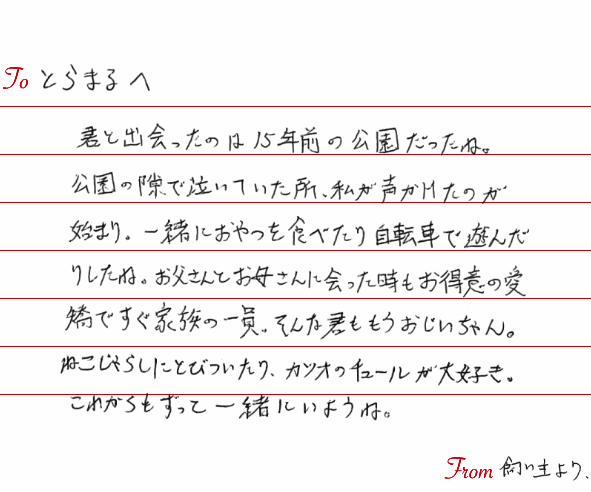 To とらまるへ
君と出会ったのは15年前の公園だったね。
公園の隙で泣いていた所、私が声かけたのが
始まり。一緒におやつを食べたり自転車で遊んだ
りしたね。お父さんとお母さんに会った時もお得意の愛
矯ですぐ家族の一員。そんな君ももうおじいちゃん。
ねこじゃらしにとびついたり、カツオのチュールが大好き。
これからもずって一緒にいようね。
From 飼い主より、